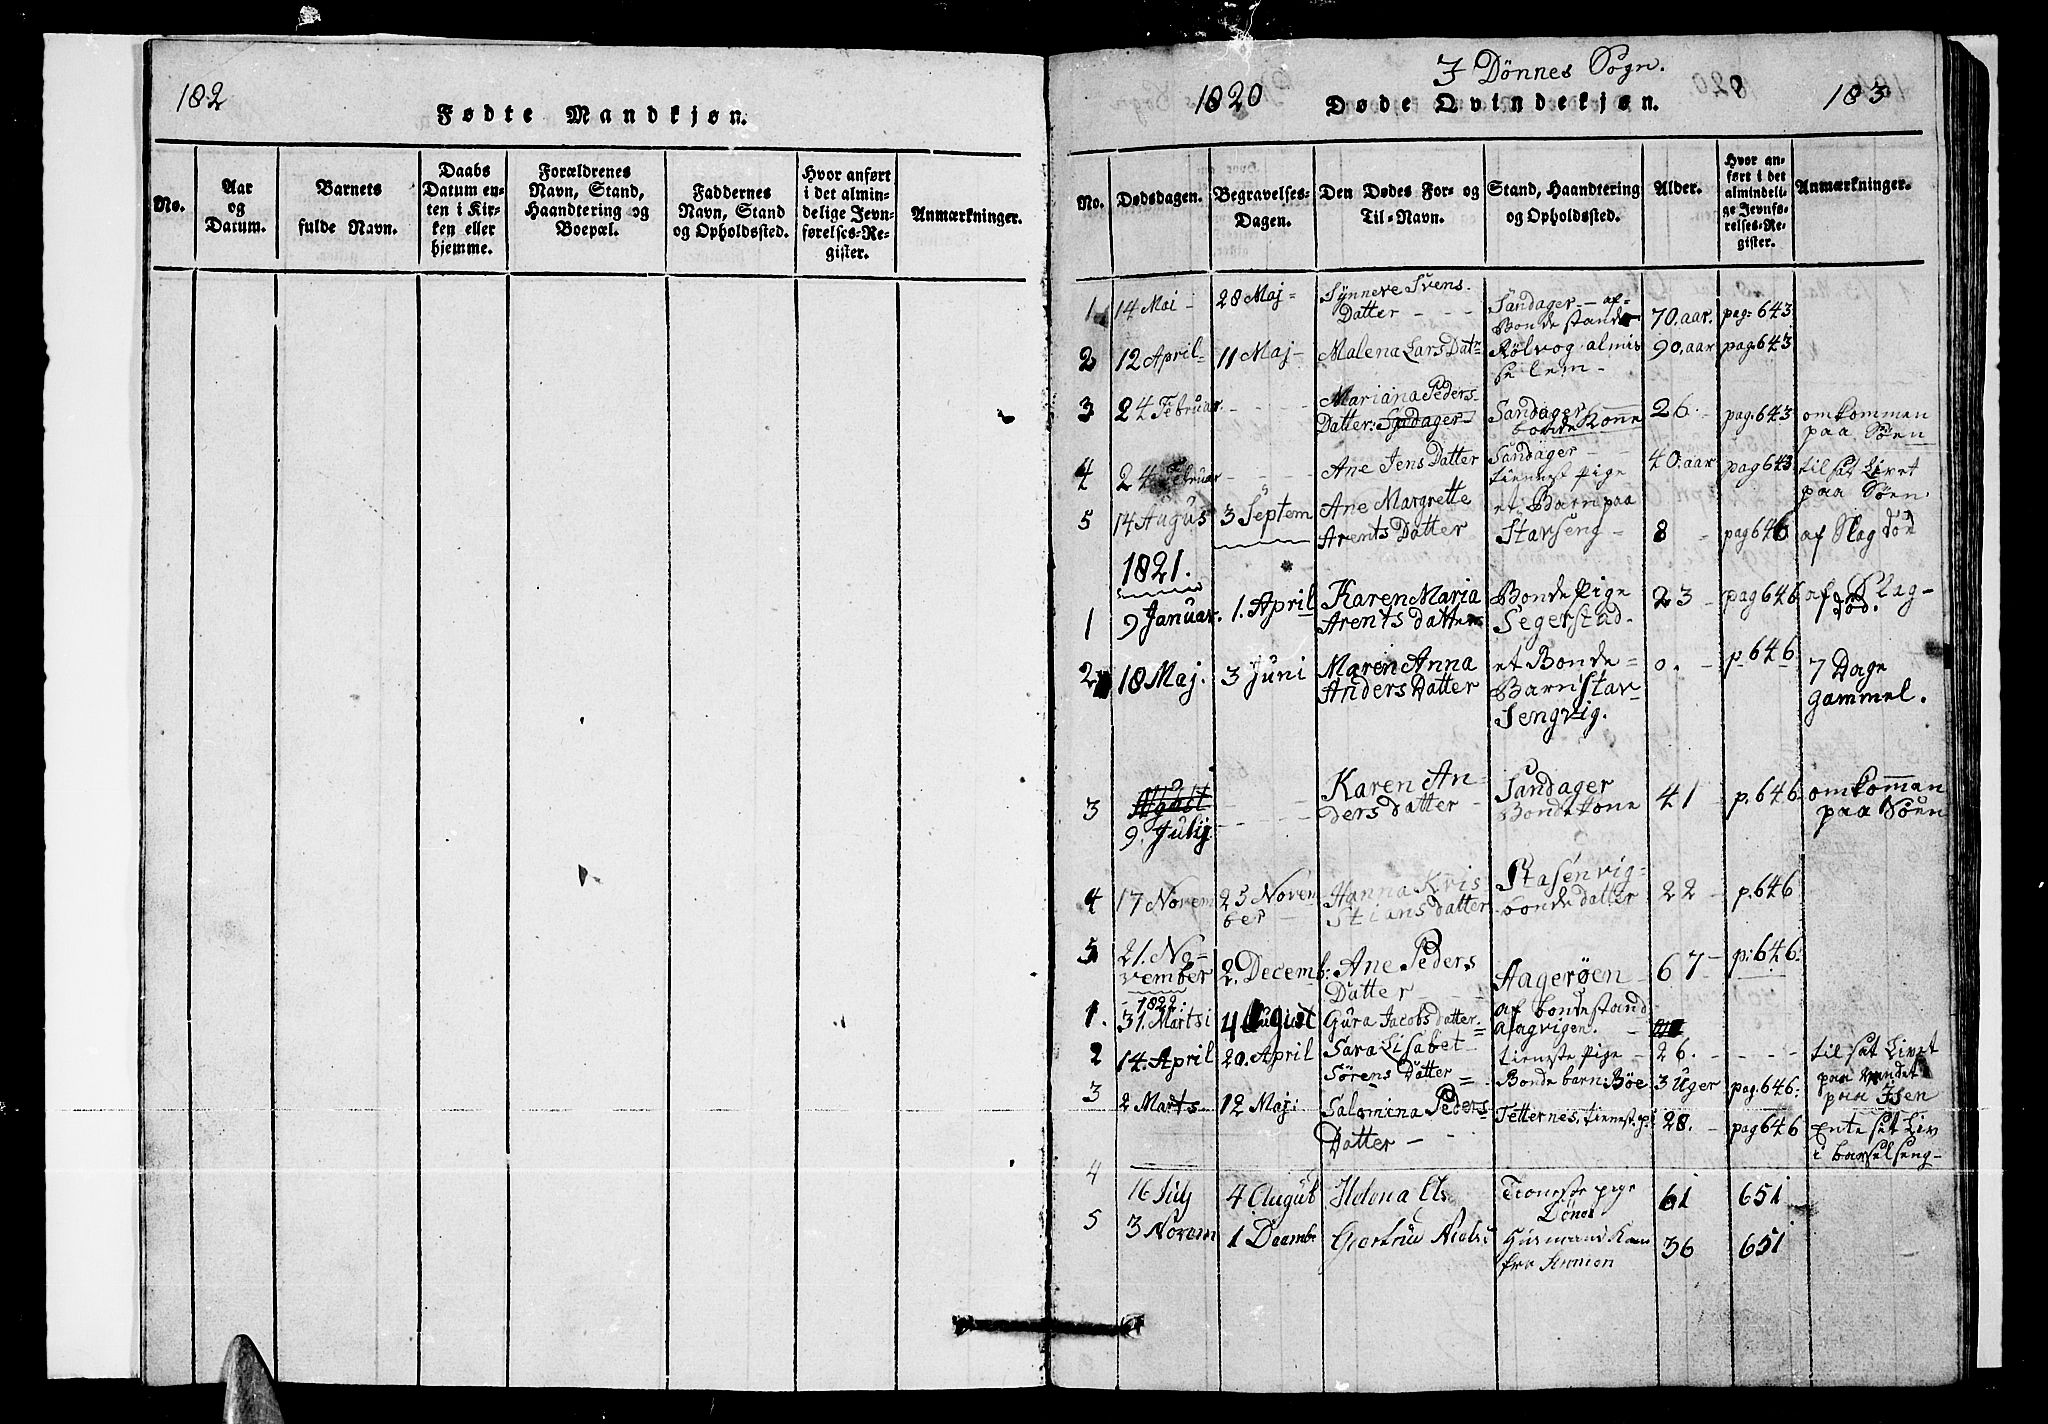 182
Fødte Mandkjøn.
No.
Aar
og
Datum.
Barnets
fulde Navn.
Daabs
Datum en-
ten i Kir-
ken eller
hjemme.
Forældrenes
Navn, Stand,
Haandtering og
Boepæl.
Faddernes
Navn, Stand
og Opholdssted.
Hvor anført
i det almin-
delige Jevn-
førelses-Re-
gister.
Anmærkninger.
I Dönnes Sogn.
1820
Døde Qvindekjøn.
183
No.
Dødsdagen.
Begravelses-
Dagen.
Den Dødes For- og
Til-Navn.
Stand, Haandtering
og Opholdssted.
Alder.
Hvor an-
ført i det
almindeli-
ge Jevnfø-
relses-Re-
gister.
Anmærkninger.
1 14 Mai - 28 Maj - Synneve Svens-
Datter - - - Sandager - af
Bonde stand 70. aar. pag: 643
2 12 April - 11 Maj - Malena Lars Dat= Rølvog almis
se lem - 90. aar pag 643
3 24 Februar. - - - Mariana Peders-
Datter: Sandager Sandager
bonde Konne 26. pag. 643 omkommen
paa Søen
4 24 Februar - - - Ane Jens Datter Sandager - -
tienest Pige 40. aar pag 643 til sat Livet
paa Søen.
5 14 Augus 3 Septem Ane Margrette
Arents Datter et Barn paa
Stavseng - 8 - pag 646 af Slag död
1821.
1 9 Januar. 1. April Karen Maria
Arents datter Bonde Pige
Segerstad. 23 - pag 646 af Slag-
död.
2 18 Maj. 3 Juni Maren Anna
Anders Datter et Bonde=
Barn Stav-
Sengvig. 0. - p 646 7 Dage
gammel.
3 9. Julij - - - Karen An-
ders datter - Sandager
Bonde kone 41 - p. 646. omkomman
paa Søen
4 17 Novem 25 Novem
ber - Hanna Kris
Stians datter Stasenvig-
bonde datter 22 - p. 646
5 21. No-
vember 2. Decemb: Ane Peders
Datter - - Aagerøen - 67 - p: 646:
1822.
1. 31. Martsi 4 August Gura Jacobs datter= af bondestand
alagvigen. -
2 14. April 20. April Sara Lisabet-
Sörens Datter = tieneste Pige - 26. - - - - til sat Livet
paa vandet
paa Isen
3 2 Marts 12 Maj: Bonde barn Böe 3 Uger pag. 646:
Salomina Peders
Datter - - Tetternes, tienest. pi 28. - pag 646 Ente set Liv
i barselseng-
4 16 July 4 August Helena Els Tieneste pige
Dönes 61 651
5 3 Novem 1 Decembr Giertrud Niels Huusmands Kon
fra 36 651